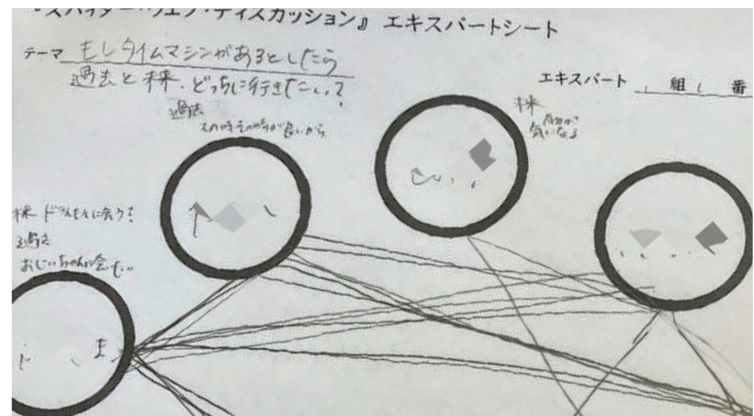 『スパイダー・ウェブ・ディスカッション』 エキスパートシート
テーマ もしタイムマシンがあるとしたら
過去と未来、どっちに行きたい?
エキスパート 組 番
過去
未来
気になる
未来 ドラえもんに会う!
過去
おじいちゃんに会いたい